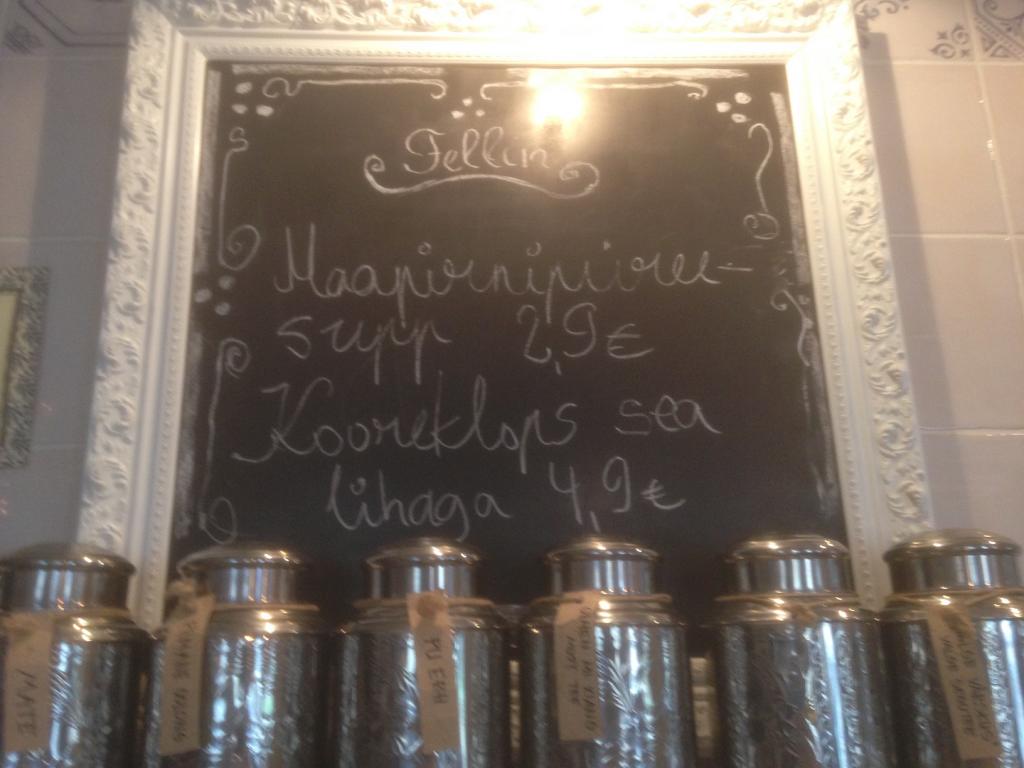 Fellin
Maapirnipüree-
supp 2,9€
Kooreklops sea
lihaga 4,9€
MATE
PU ERH